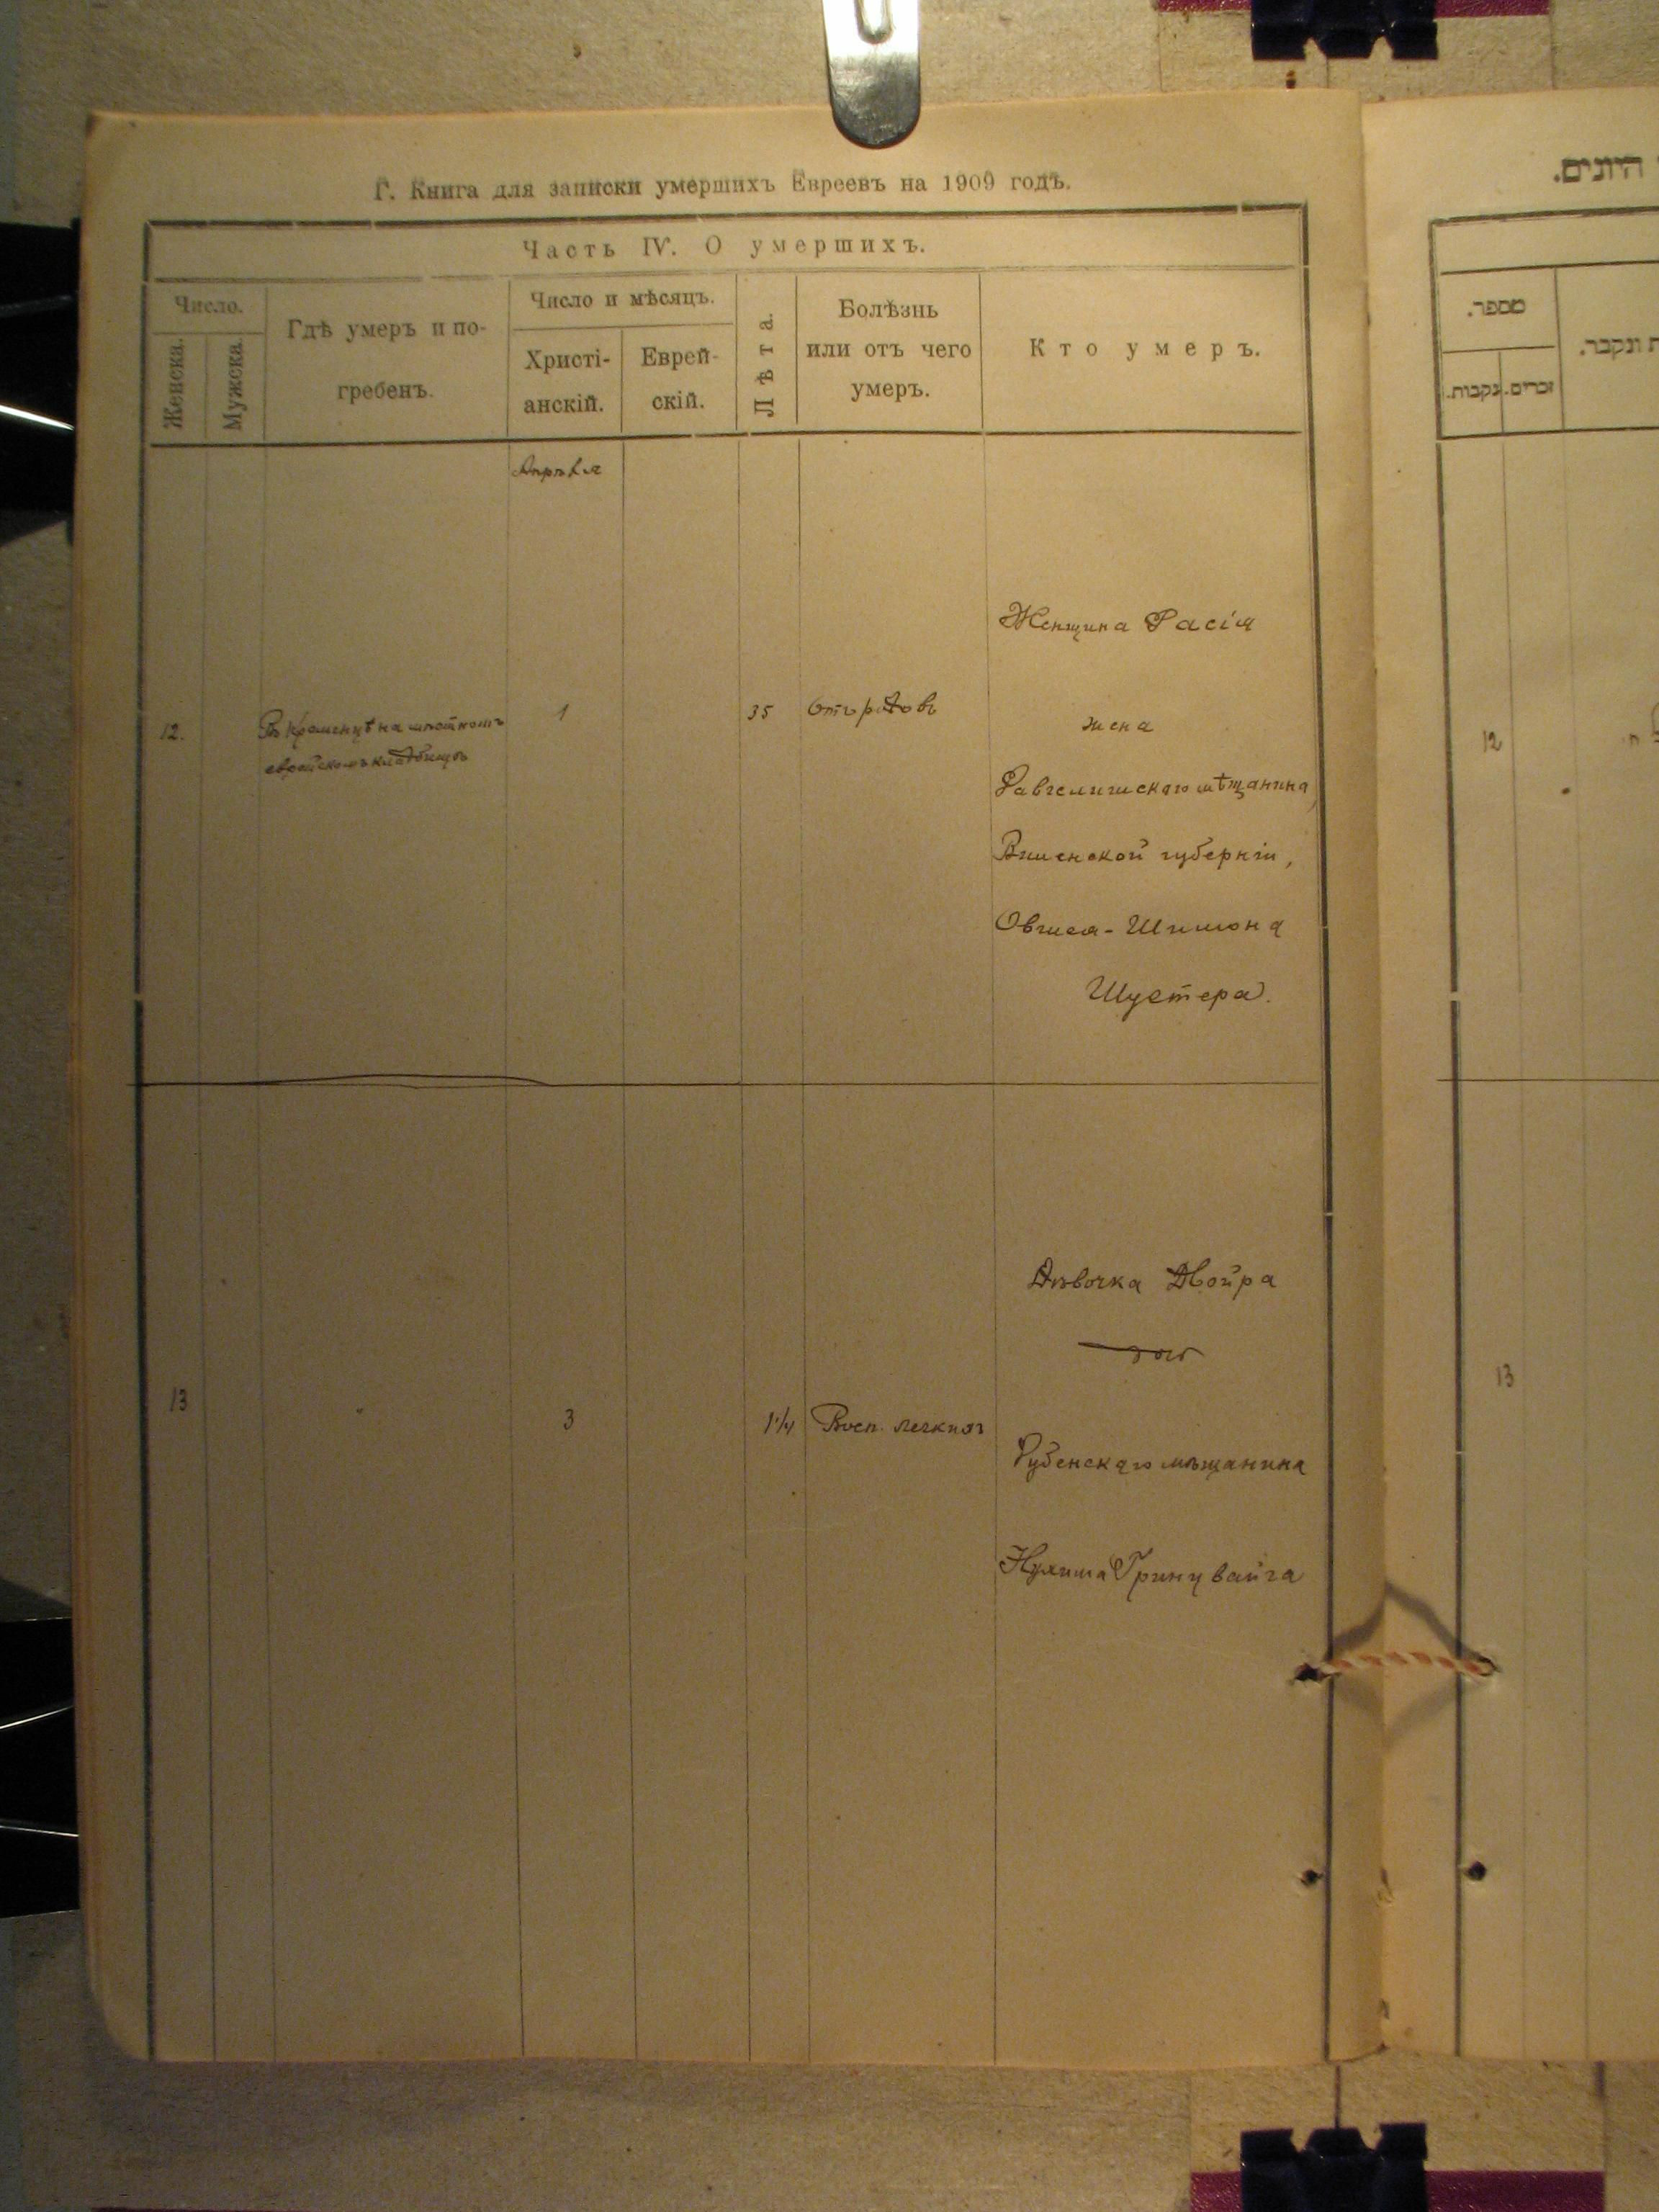 Г. Книга для записки умершихъ Евреевъ на 1909 годъ.
Часть IV. О умершихъ.
Число.
Женска.
Мужска.
Гдѣ умеръ и по-
гребенъ.
Число и мѣсяцъ.
Христі-
анскій.
Еврей-
скій.
Лѣта.
Болѣзнь
или отъ чего
умеръ.
Кто умеръ.
Апрѣля
12.
Въ Кременцѣ на мѣстномъ
еврейскомъ кладбищѣ
1
35
Отъ родовъ
Женщина Расія
жена
мѣщанина,
Виленской губерніи,
Овшея-Шимона
Шустера.
13
"
3
1 1/4
Восп. легкихъ
Дѣвочка Двойра
дочь
мѣщанина
Гринцвайга
היונים.
מספר.
נקבות.
זכרים.
ונקבר.
12
13